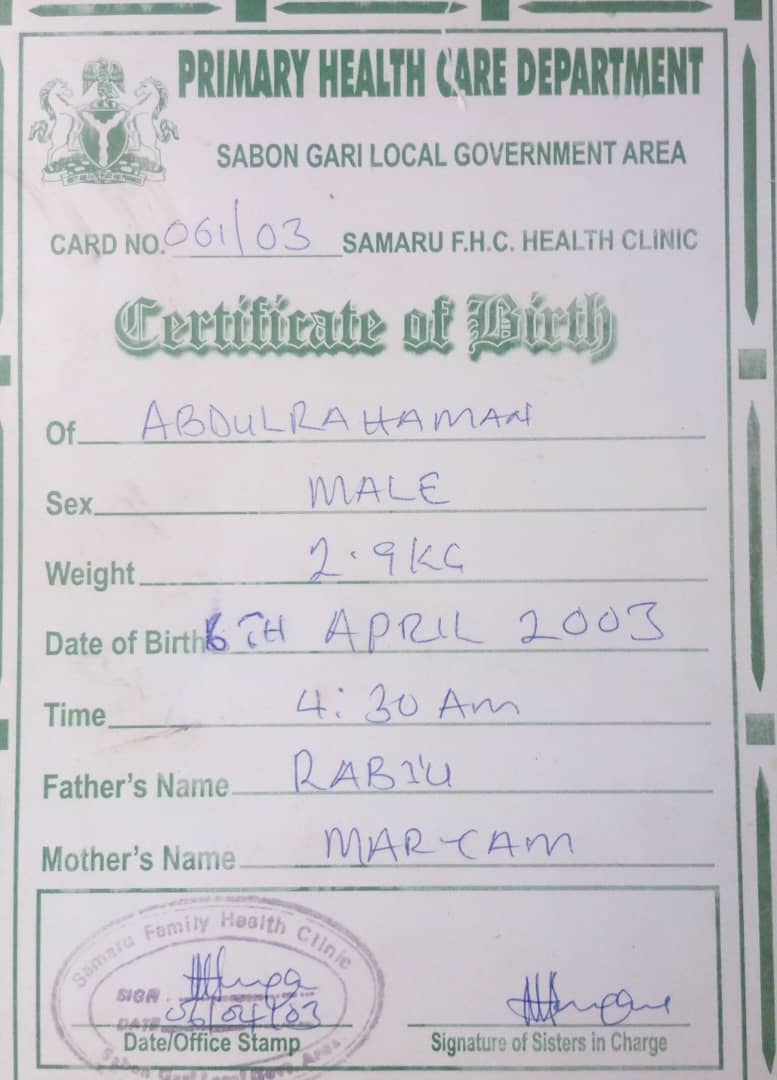 PRIMARY HEALTH CARE DEPARTMENT
SABON GARI LOCAL GOVERNMENT AREA
CARD NO. 061/03 SAMARU F.H.C. HEALTH CLINIC
Certificate of Birth
Of ABDULRAHAMAN
Sex MALE
Weight 2.9KG
Date of Birth 6TH APRIL 2003
Time 4:30 Am
Father's Name RABI'U
Mother's Name MARYAM
Samaru Family Health Clinic
SIGN
DATE 06/04/03
Sabon Gari Local Govt. Area
Date/Office Stamp
Signature of Sisters in Charge